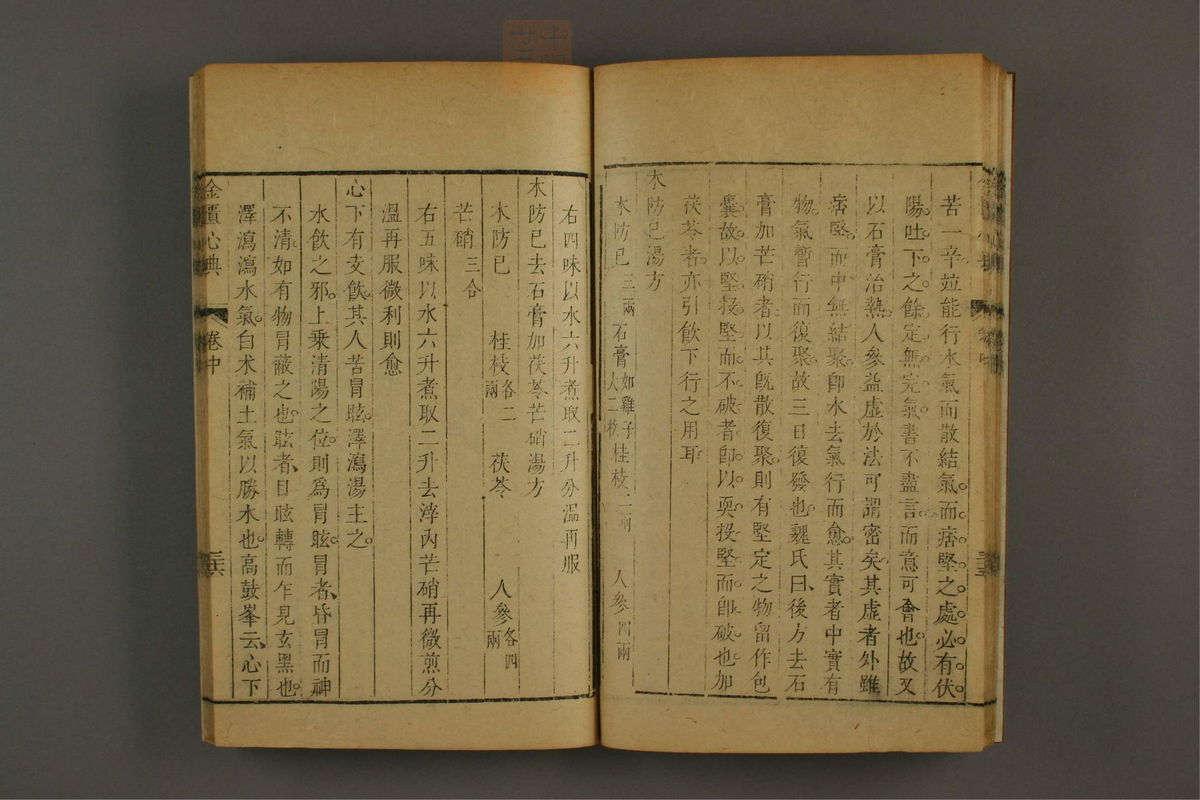 苦一辛竝能行水氣而散結氣而痞堅之處必有伏
陽吐下之餘定無完氣書不盡言而意可會也故又
以石膏治熱人參益虛於法可謂密矣其虛者外雖
痞堅而中無結聚卽水去氣行而愈其實者中實有
物氣暫行而復聚故三日復發也魏氏曰後方去石
膏加芒硝者以其旣散復聚則有堅定之物留作包
囊故以堅投堅而不破者卽以耎投堅而卽破也加
茯苓者亦引飮下行之用耳
木防已湯方
木防已三兩 石膏如雞子大二枚 桂枝二兩 人參四兩
右四味以水六升煮取二升分溫再服
木防已去石膏加茯苓芒硝湯方
木防已 桂枝各二兩 茯苓 人參各四兩
芒硝三合
右五味以水六升煮取二升去滓內芒硝再微煎分
溫再服微利則愈
心下有支飮其人苦冒眩澤瀉湯主之
水飮之邪上乘清陽之位則爲冒眩冒者昏冒而神
不清如有物冒蔽之也眩者目眩轉而乍見玄黑也
澤瀉瀉水氣白术補土氣以勝水也高鼓峯云心下
金匱心典 卷中 三六